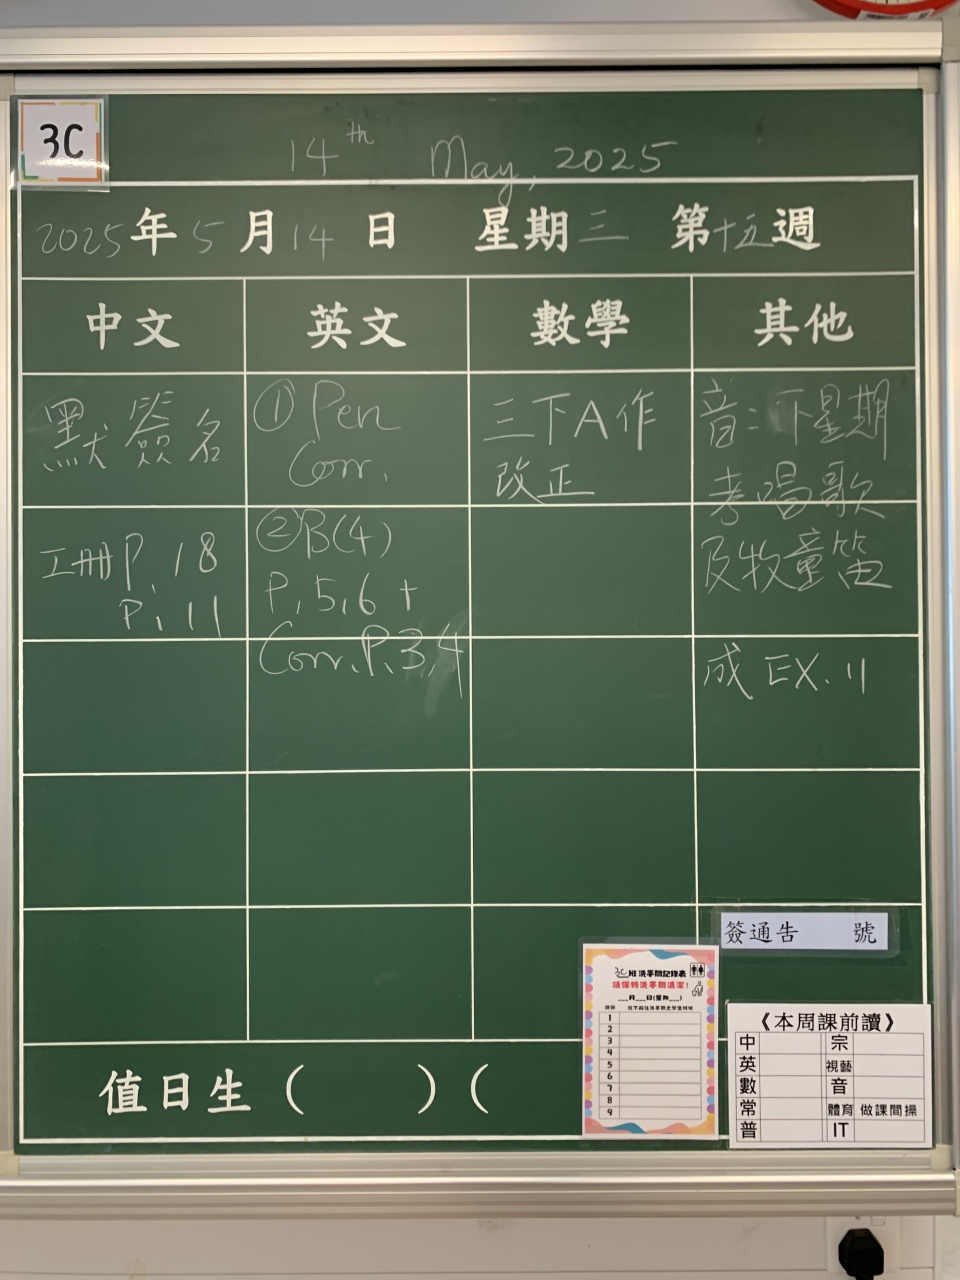 3C
14th May, 2025
2025年5月14日 星期三 第十五週
中文 英文 數學 其他
默簽名
工冊P.18
P.11
①Pen
Corr.
②B(4)
P.5,6+
Corr.P.3,4
三下A作
改正
音:下星期
考唱歌
及牧童笛
成 EX.11
簽通告 號
3C班洗手間記錄表
請保持洗手間清潔!
__月__日(星期__)
1
2
3
4
5
6
7
8
9
《本周課前讀》
中 宗
英 視藝
數 音
常 體育 做課間操
普 IT
值日生( )(